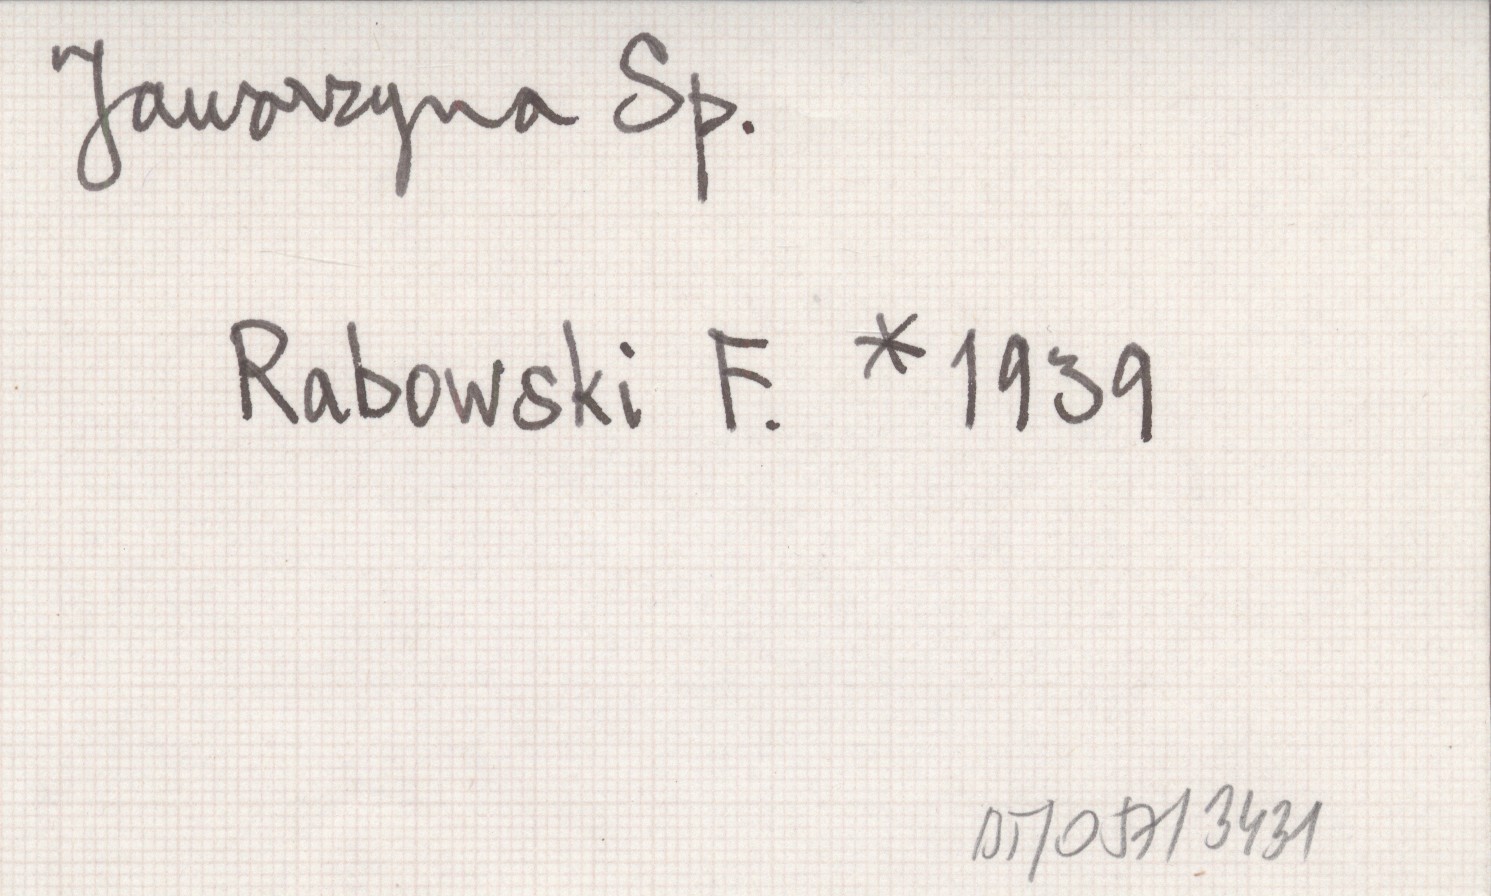 Jaworzyna Sp.
Rabowski F. *1939
DT/057/3431